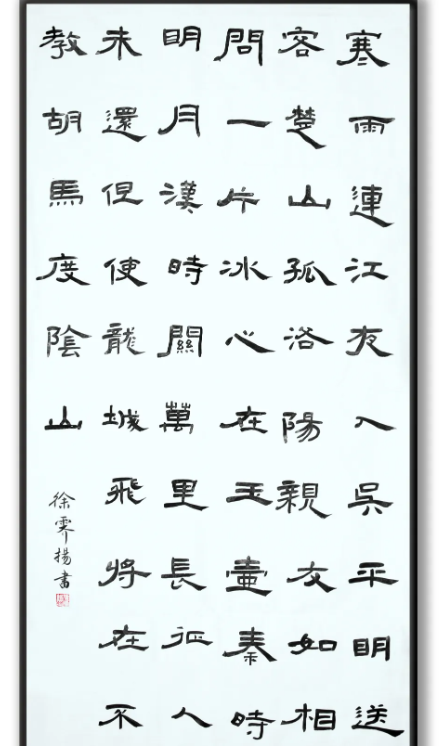 寒雨連江夜入吳平明送
客楚山孤洛陽親友如相
問一片冰心在玉壺秦時
明月漢時關萬里長征人
未還但使龍城飛將在不
教胡馬度陰山
徐霁揚書